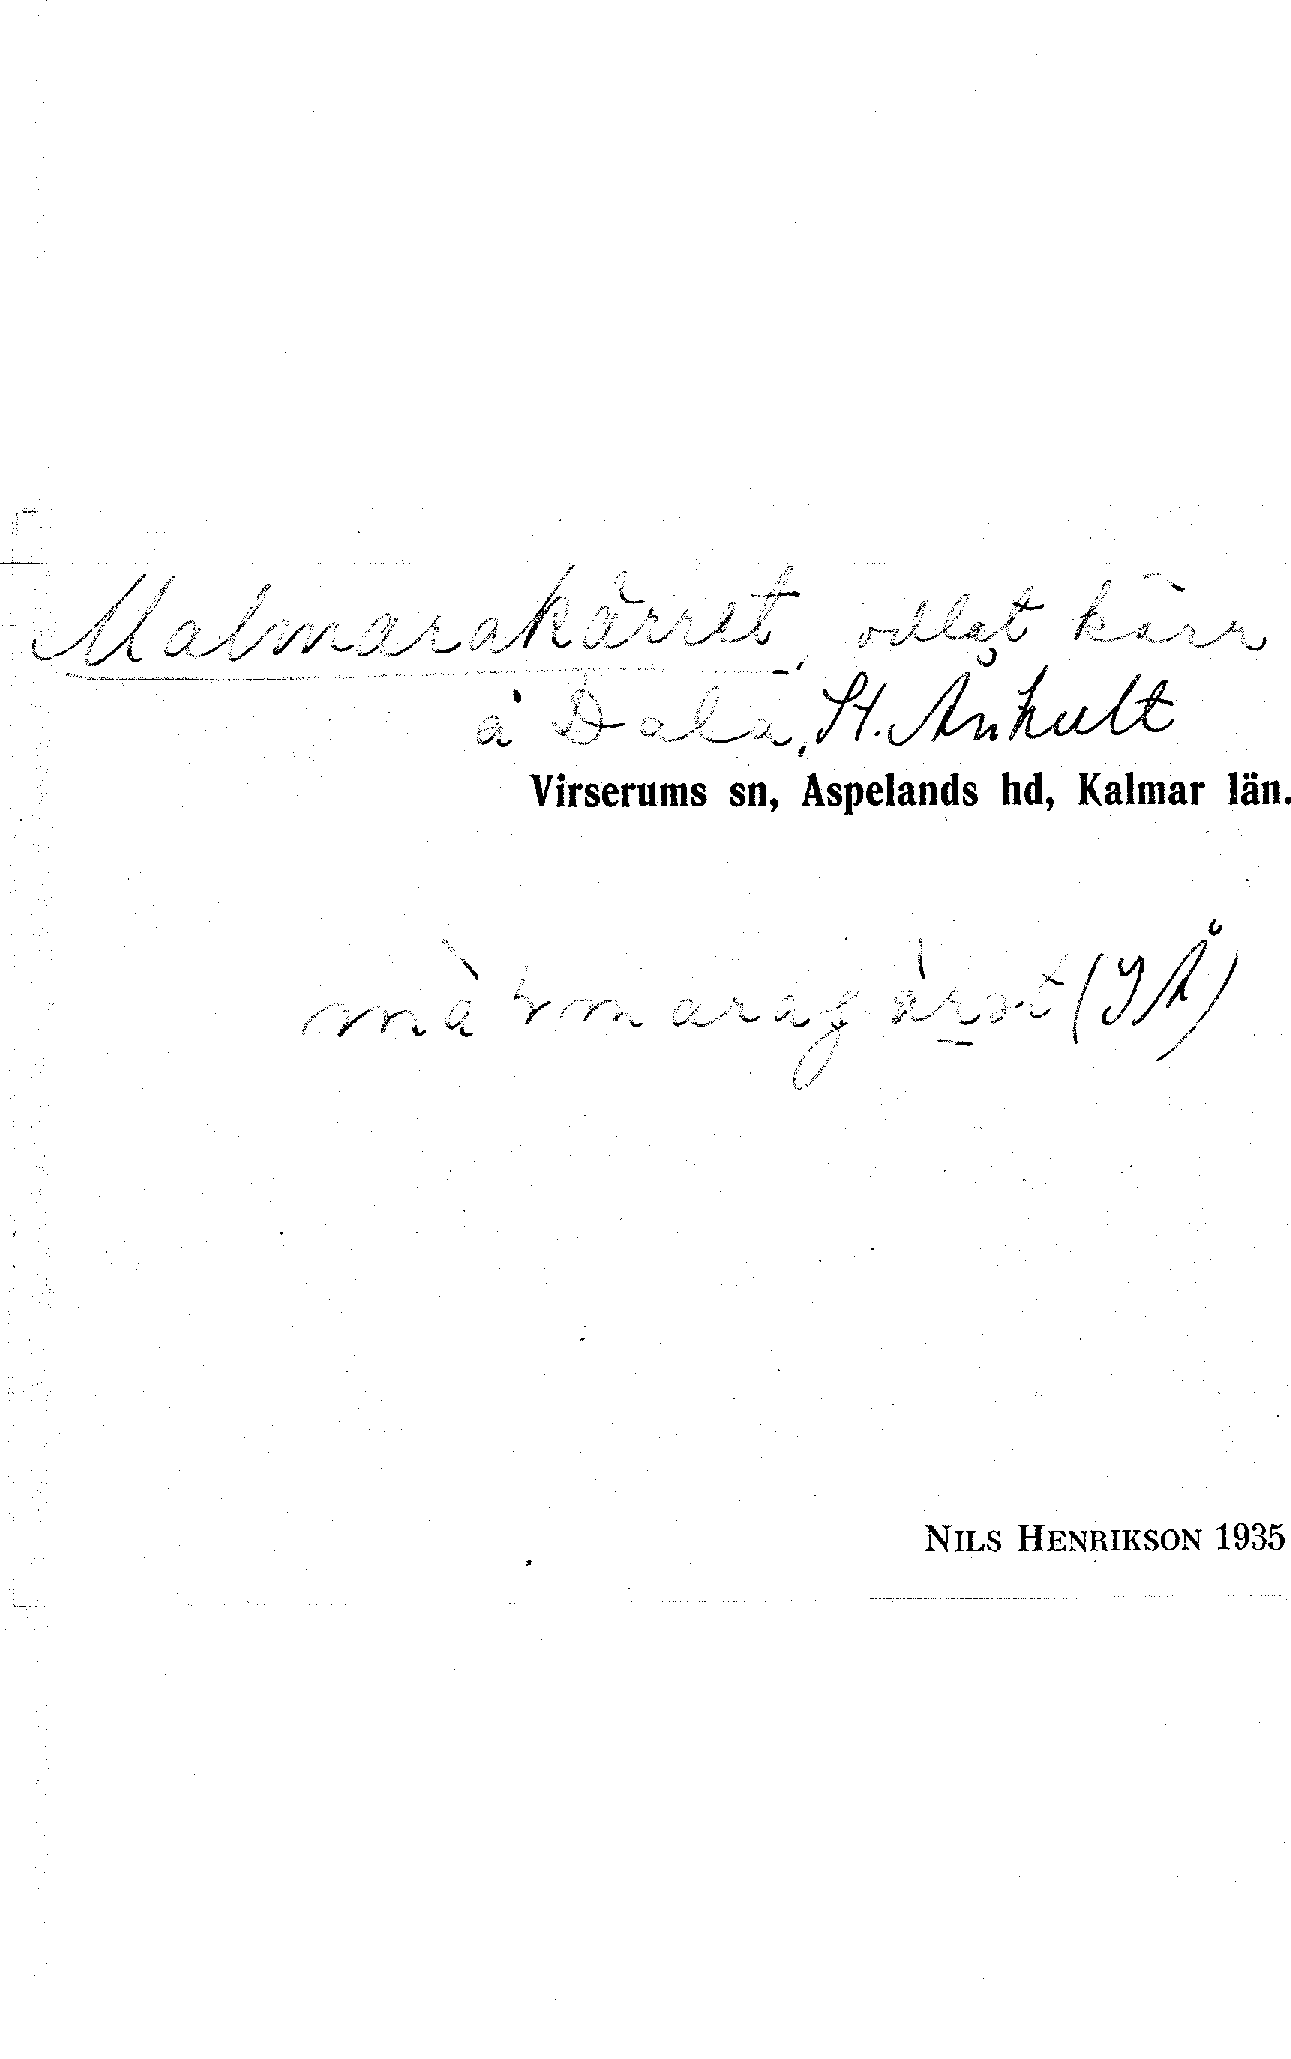 Malmarakärret, odlat kärr
å Dala, St. Ånhult
Virserums sn, Aspelands hd, Kalmar län.
(IÅ)
NILS HENRIKSON 1935